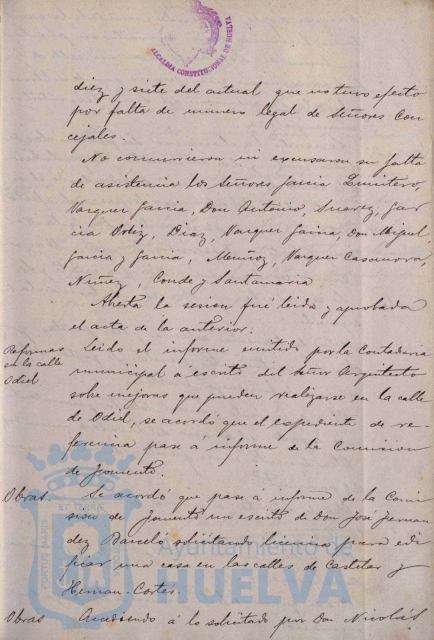 ALCALDIA CONSTITUCIONAL DE HUELVA
diez y siete del actual que no tuvo efecto
por falta de número legal de Señores Con
cejales.
No concurrieron ni excusaron su falta
de asistencia los Señores Garcia Quintero,
Vazquez Garcia, Don Antonio, Suarez, Gar
cia Ortiz, Diaz, Vazquez Garcia, Don Miguel,
Garcia y Garcia, Muñoz, Vazquez Casanova,
Nuñez, Conde y Santamaria
Abierta la sesion fué leida y aprobada
el acta de la anterior.
Reformas
en la calle
Odiel
Leido el informe emitido por la Contaduria
municipal á escrito del Señor Arquitecto
sobre mejoras que pueden realizarse en la calle
de Odiel, se acordó que el expediente de re-
ferencia pase á informe de la Comision
de Fomento.
Obras
Se acordó que pase á informe de la Comi
sion de Fomento un escrito de Don José Fernan
dez Barceló solicitando licencia para edi
ficar una casa en las calles de Castelar y
Hernan-Cortes.
Obras
Accediendo á lo solicitado por Don Nicolás
PORTUS MARIS
ET TERRAE
Ayuntamiento de
HUELVA